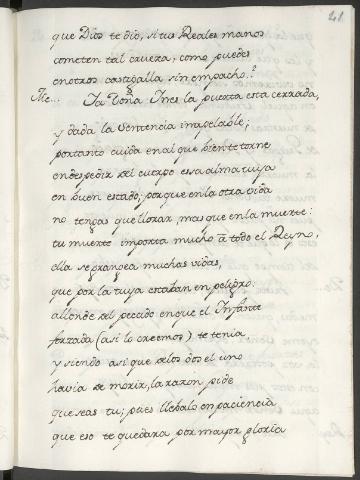 41.
que Dios te dió, si tus Reales manos
cometen tal crueza, como puedes
en otros castigalla sin empacho?
Me... Ya Doña Ines la puerta esta cerrada,
y dada la Sentencia inapelable;
portanto cuida en al que bien te torne
en despedir del cuerpo essa alma tuya
en buen estado; porque en la otra vida
no tengas que llorar, mas que en la muerte:
tu muerte importa mucho a todo el Reyno,
ella se prangea muchas vidas,
que por la tuya estaban en peligro.
allende del peccado en que el Infante
forzada (asi lo creemos) te tenia
y siendo asi que delos dos el uno
havia de morir, la razon pide
que seas tu; pues llebalo en paciencia
que eso te quedara por mayor gloria